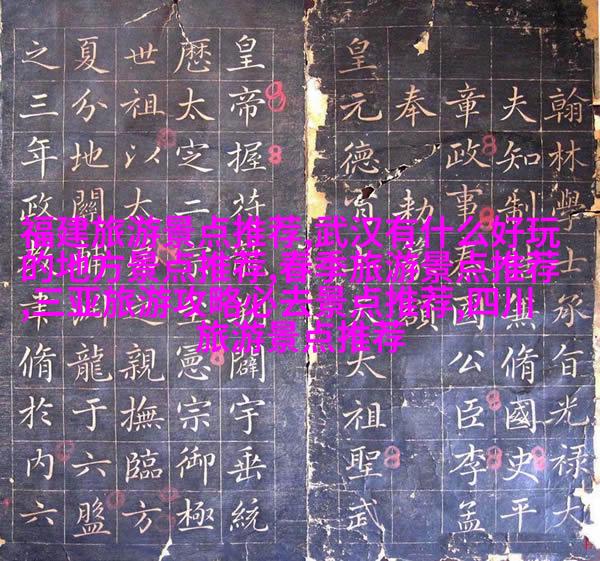 福建旅游景点推荐,武汉有什么好玩
的地方景点推荐,春季旅游景点推荐
,三亚旅游攻略必去景点推荐,四川
旅游景点推荐
翰林學士承旨光祿大
夫知制兼脩國史平
章政事國公臣李孟
奉勅
皇元德太祖聖武
皇帝握符闢宇垂統
歷太定二憲宗御極
世祖以大親撫臨方
夏分地關龍于六盤
之三年政脩於內六